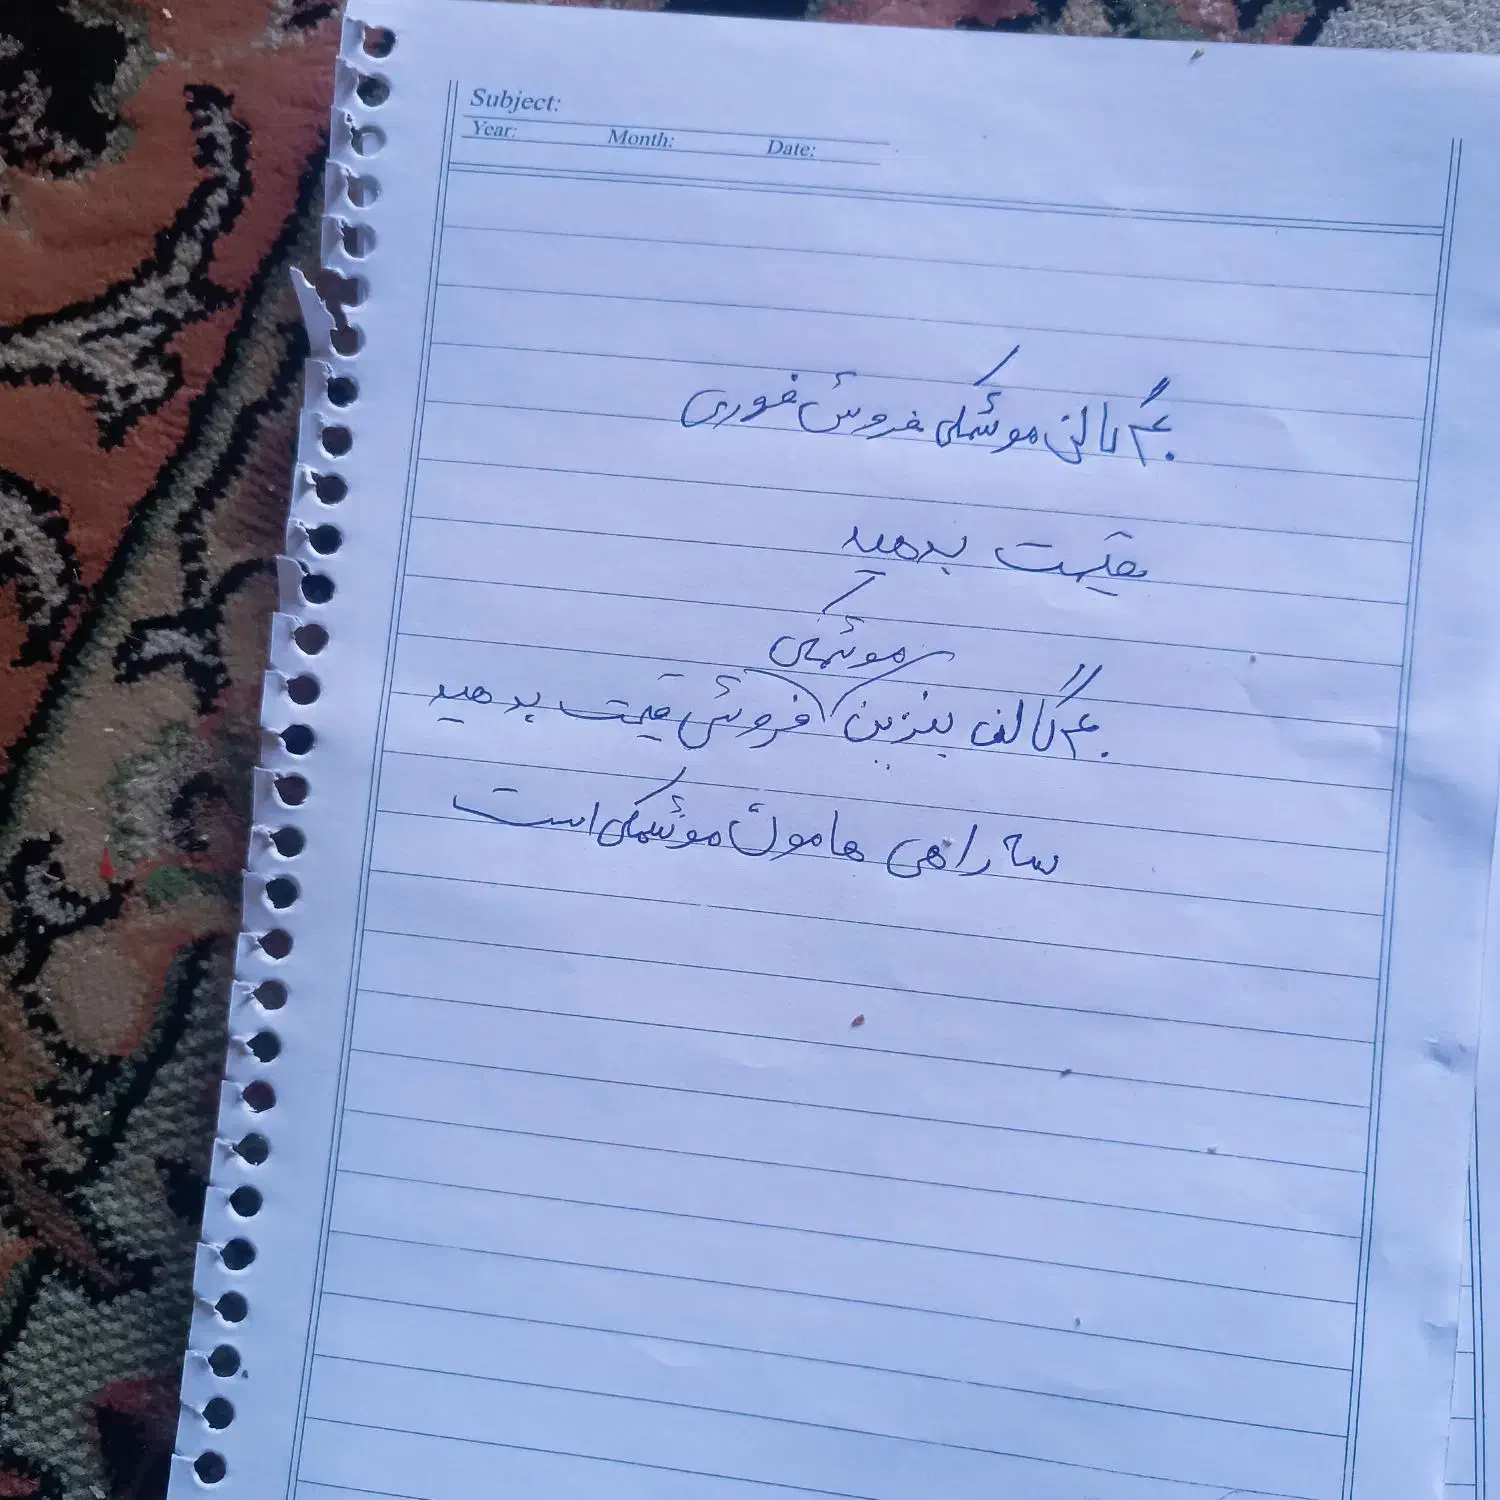 Subject:
Year: Month: Date:
۴۰ گالن موشکی فروش فوری
قیمت بدهید
موشکی
۴۰ گالن بنزین فروشی قیمت بدهید
سه راهی هامون موشکی است